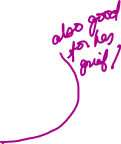 also good
for her
grief!